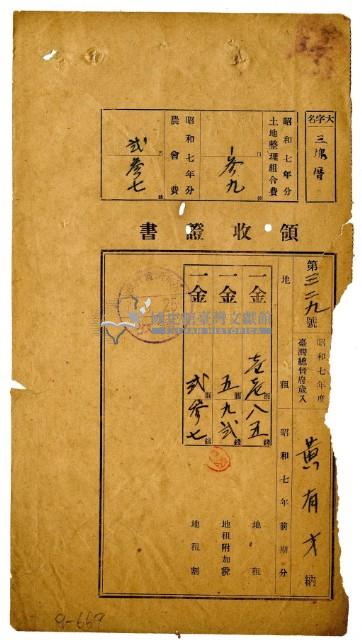 大字名
三塊厝
昭和七年分
土地整理組合費
參九
昭和七年分
農會費
貳參七
領收證書
第三二九號
昭和七年度
臺灣總督府歲入
黃有才 納
地租 昭和七年前期分
一金 八五 地租
一金 五九貳 地租附加稅
一金 貳參七 地租割
國史館臺灣文獻館
TAIWAN HISTORICA
9-669